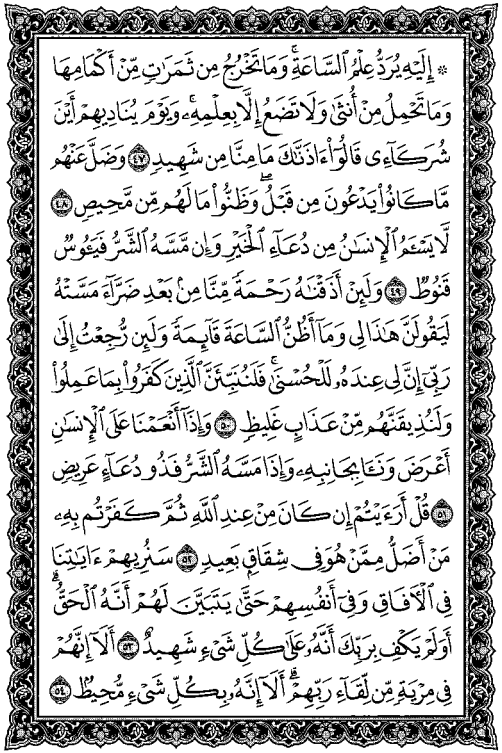 ۞ إِلَيْهِ يُرَدُّ عِلْمُ ٱلسَّاعَةِۚ وَمَا تَخْرُجُ مِن ثَمَرَٰتٖ مِّنۡ أَكۡمَامِهَا
وَمَا تَحۡمِلُ مِنۡ أُنثَىٰ وَلَا تَضَعُ إِلَّا بِعِلۡمِهِۦۚ وَيَوۡمَ يُنَادِيهِمۡ أَيۡنَ
شُرَكَآءِي قَالُوٓاْ ءَاذَنَّٰكَ مَا مِنَّا مِن شَهِيدٖ ٤٧ وَضَلَّ عَنۡهُم
مَّا كَانُواْ يَدۡعُونَ مِن قَبۡلُۖ وَظَنُّواْ مَا لَهُم مِّن مَّحِيصٖ ٤٨
لَّا يَسۡـَٔمُ ٱلۡإِنسَٰنُ مِن دُعَآءِ ٱلۡخَيۡرِ وَإِن مَّسَّهُ ٱلشَّرُّ فَيَـُٔوسٞ
قَنُوطٞ ٤٩ وَلَئِنۡ أَذَقۡنَٰهُ رَحۡمَةٗ مِّنَّا مِنۢ بَعۡدِ ضَرَّآءَ مَسَّتۡهُ
لَيَقُولَنَّ هَٰذَا لِي وَمَآ أَظُنُّ ٱلسَّاعَةَ قَآئِمَةٗ وَلَئِن رُّجِعۡتُ إِلَىٰ
رَبِّيٓ إِنَّ لِي عِندَهُۥ لَلۡحُسۡنَىٰۚ فَلَنُنَبِّئَنَّ ٱلَّذِينَ كَفَرُواْ بِمَا عَمِلُواْ
وَلَنُذِيقَنَّهُم مِّنۡ عَذَابٍ غَلِيظٖ ٥٠ وَإِذَآ أَنۡعَمۡنَا عَلَى ٱلۡإِنسَٰنِ
أَعۡرَضَ وَنَـَٔا بِجَانِبِهِۦ وَإِذَا مَسَّهُ ٱلشَّرُّ فَذُو دُعَآءٍ عَرِيضٖ
٥١ قُلۡ أَرَءَيۡتُمۡ إِن كَانَ مِنۡ عِندِ ٱللَّهِ ثُمَّ كَفَرۡتُم بِهِۦ
مَنۡ أَضَلُّ مِمَّنۡ هُوَ فِي شِقَاقِۭ بَعِيدٖ ٥٢ سَنُرِيهِمۡ ءَايَٰتِنَا
فِي ٱلۡأٓفَاقِ وَفِيٓ أَنفُسِهِمۡ حَتَّىٰ يَتَبَيَّنَ لَهُمۡ أَنَّهُ ٱلۡحَقُّۗ
أَوَلَمۡ يَكۡفِ بِرَبِّكَ أَنَّهُۥ عَلَىٰ كُلِّ شَيۡءٖ شَهِيدٌ ٥٣ أَلَآ إِنَّهُمۡ
فِي مِرۡيَةٖ مِّن لِّقَآءِ رَبِّهِمۡۗ أَلَآ إِنَّهُۥ بِكُلِّ شَيۡءٖ مُّحِيطُۢ ٥٤